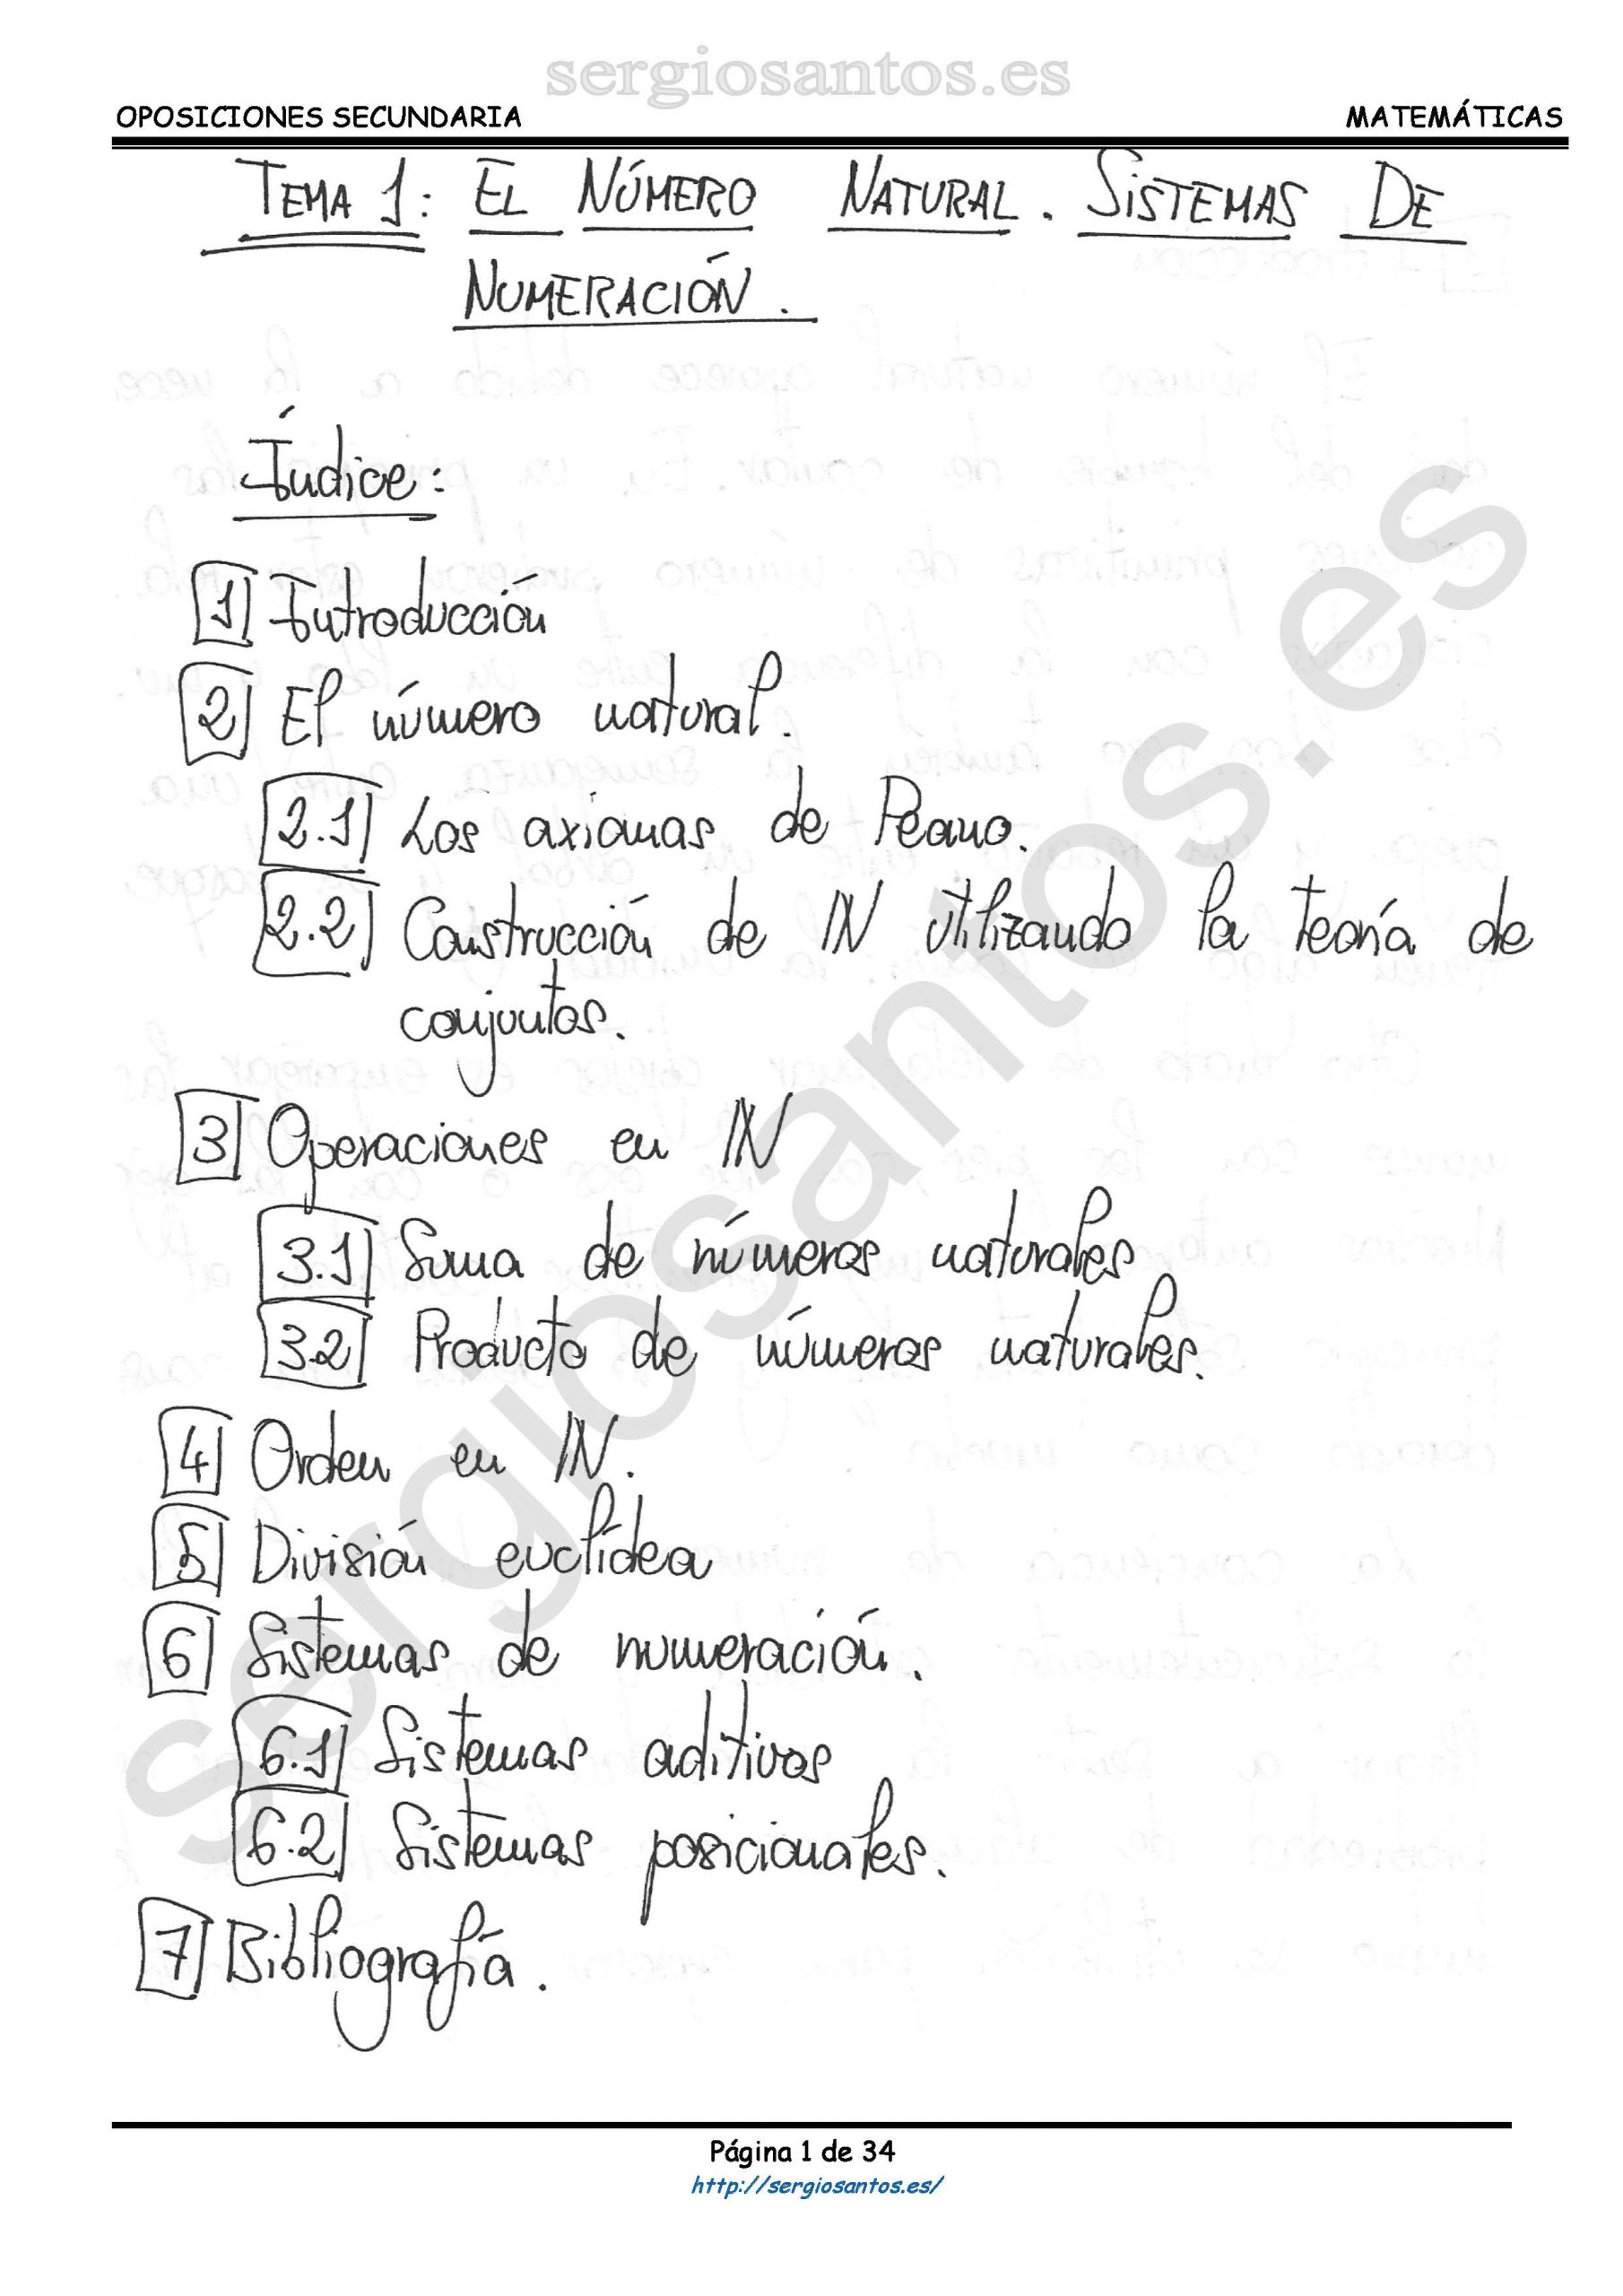 sergiosantos.es
OPOSICIONES SECUNDARIA MATEMÁTICAS
TEMA 1: EL NÚMERO NATURAL. SISTEMAS DE
NUMERACIÓN.
Índice:
1 Introducción
2 El número natural.
2.1 Los axiomas de Peano.
2.2 Construcción de ℕ utilizando la teoría de
conjuntos.
3 Operaciones en ℕ
3.1 Suma de números naturales
3.2 Producto de números naturales.
4 Orden en ℕ.
5 División euclídea
6 Sistemas de numeración.
6.1 Sistemas aditivos
6.2 Sistemas posicionales.
7 Bibliografía.
sergiosantos.es
Página 1 de 34
http://sergiosantos.es/